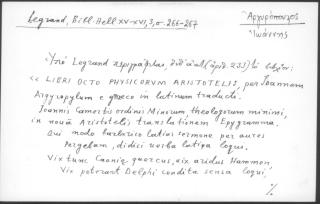 Legrand, Bibl. Hell. XV-XVI, 3, σ. 266-267
Ἀργυρόπουλος
Ἰωάννης
Ὑπὸ Legrand περιγράφεται, (ἀριθ. 233)
« LIBRI OCTO PHYSICORUM ARISTOTELIS, per Joannem
Argyropylum e græco in latinum traducti.
Joannis Camertis ordinis Minorum theologorum minimi,
in novā Aristotelis translationem Epygramma.
Qui modo barbarico ladios sermone per aures
Pergebam, didici verba latina loqui.
Vix tunc Caoniæ quercus, vix aridus Hammon
Vix poterant Delphi condita sensa loqui,
%